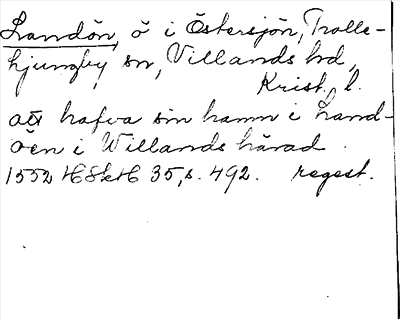 Landön, ö i Östersjön, Trolle-
hjungby sn, Villands hd,
Krist. l.
att hafva sin hamn i Land-
öen i Willands härad.
1552 HSkH 35, s. 492. regest.